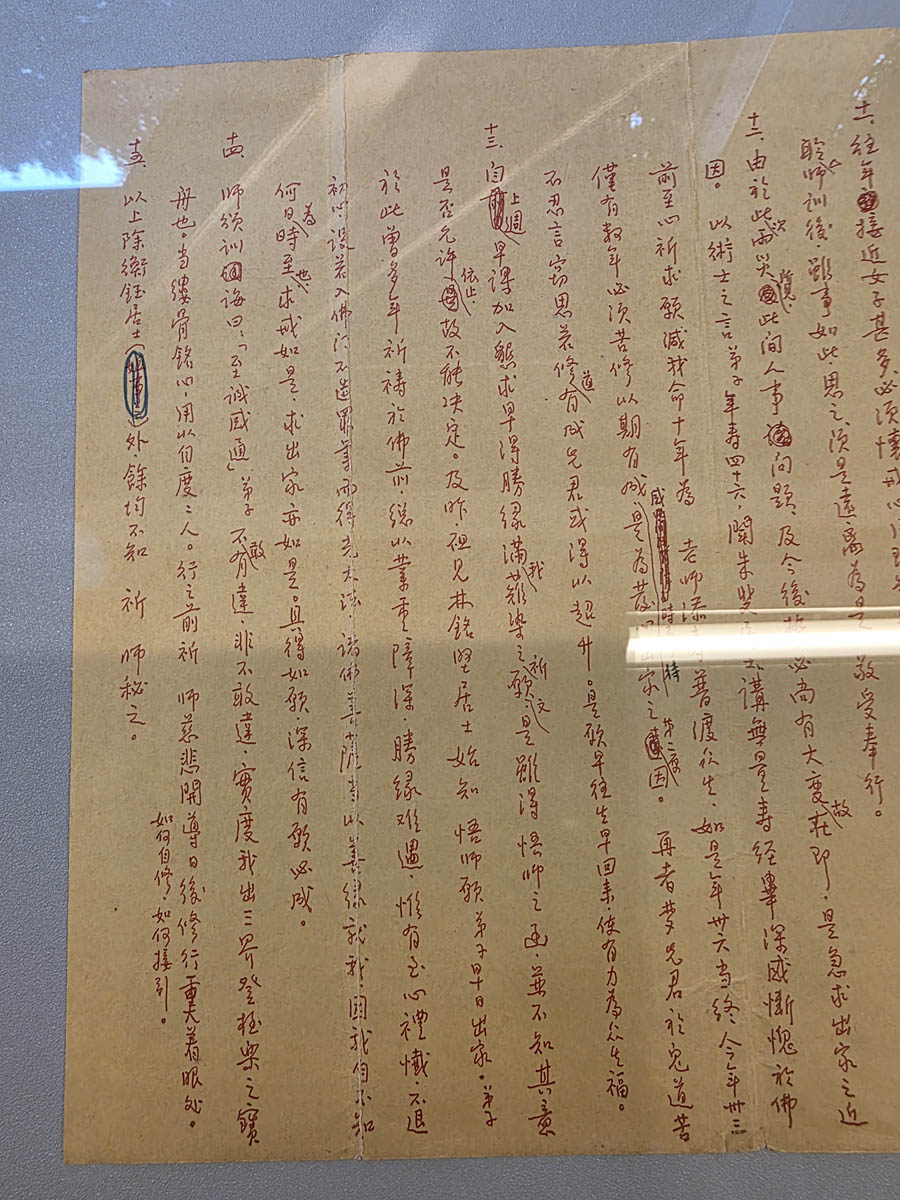 十一、往年接近女子甚多、必須懷戒心
聆師訓後、雖事如此思之、須是遠离為是、敬受奉行。
十二、由於此次兩災覺此間人事問題、及今後 必尚有大變故在即、是急求出家之近
因。 以術士之言弟子年寿四十六、聞朱斐居士講無量寿経畢深感慚愧於佛
前至心祈求願减我命十年為 老師添 普渡众生、如是年卅六当終、今年卅三
僅有数年必須苦修以期有成、是為 出家之第二度因。 再者梦先君於鬼道苦
不忍言窃思若修道有成先君或得以超升。是願早往生早回来、使有力為众生福。
十三、自上週早課加入懇求早得勝缘滿我薙染之願祈文、是雖得悟师之函、並不知其意
是否允許依止、故不能决定。及昨、祖見林銘堅居士始知 悟师願弟子早日出家。弟子
於此曾多年祈祷於佛前、総以業重障深、勝缘难遇、惟有至心禮懺、不退
初心、設若入佛门不造罪等而得光大法、諸佛菩薩当以善缘就我、因我自不知
何日為時至也、求戒如是、求出家亦如是。真得如願、深信有願必成。
十四、師领訓誨曰、「至诚感通」弟子不敢有違、非不敢違、實度我出三界登极樂之寶
再也。当缕骨銘心、用以自度二人。行之前祈 师慈悲開導日後修行重大着眼处。
如何自修、如何接引。
十五、以上除衛鈺居士外、餘均不知 祈 师秘之。